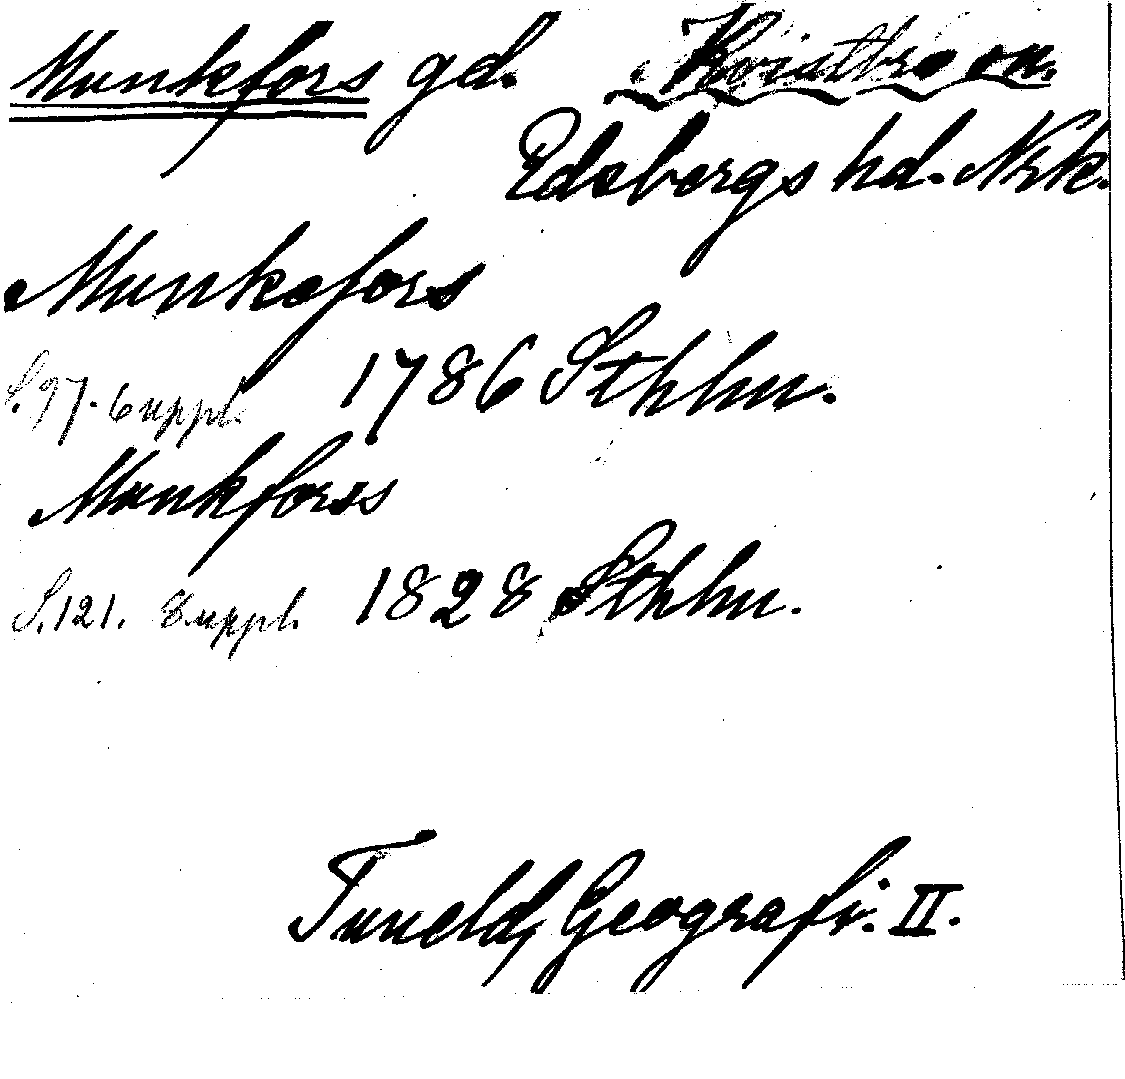 Munkfors gd. Kvistbro sn.
Edsbergs hd. Nrk.
Munkefors
S. 97. 6 uppl. 1786 Sthlm.
Munkforss
S. 121. 8 uppl. 1828 Sthlm.
Tuneld, Geografi. II.